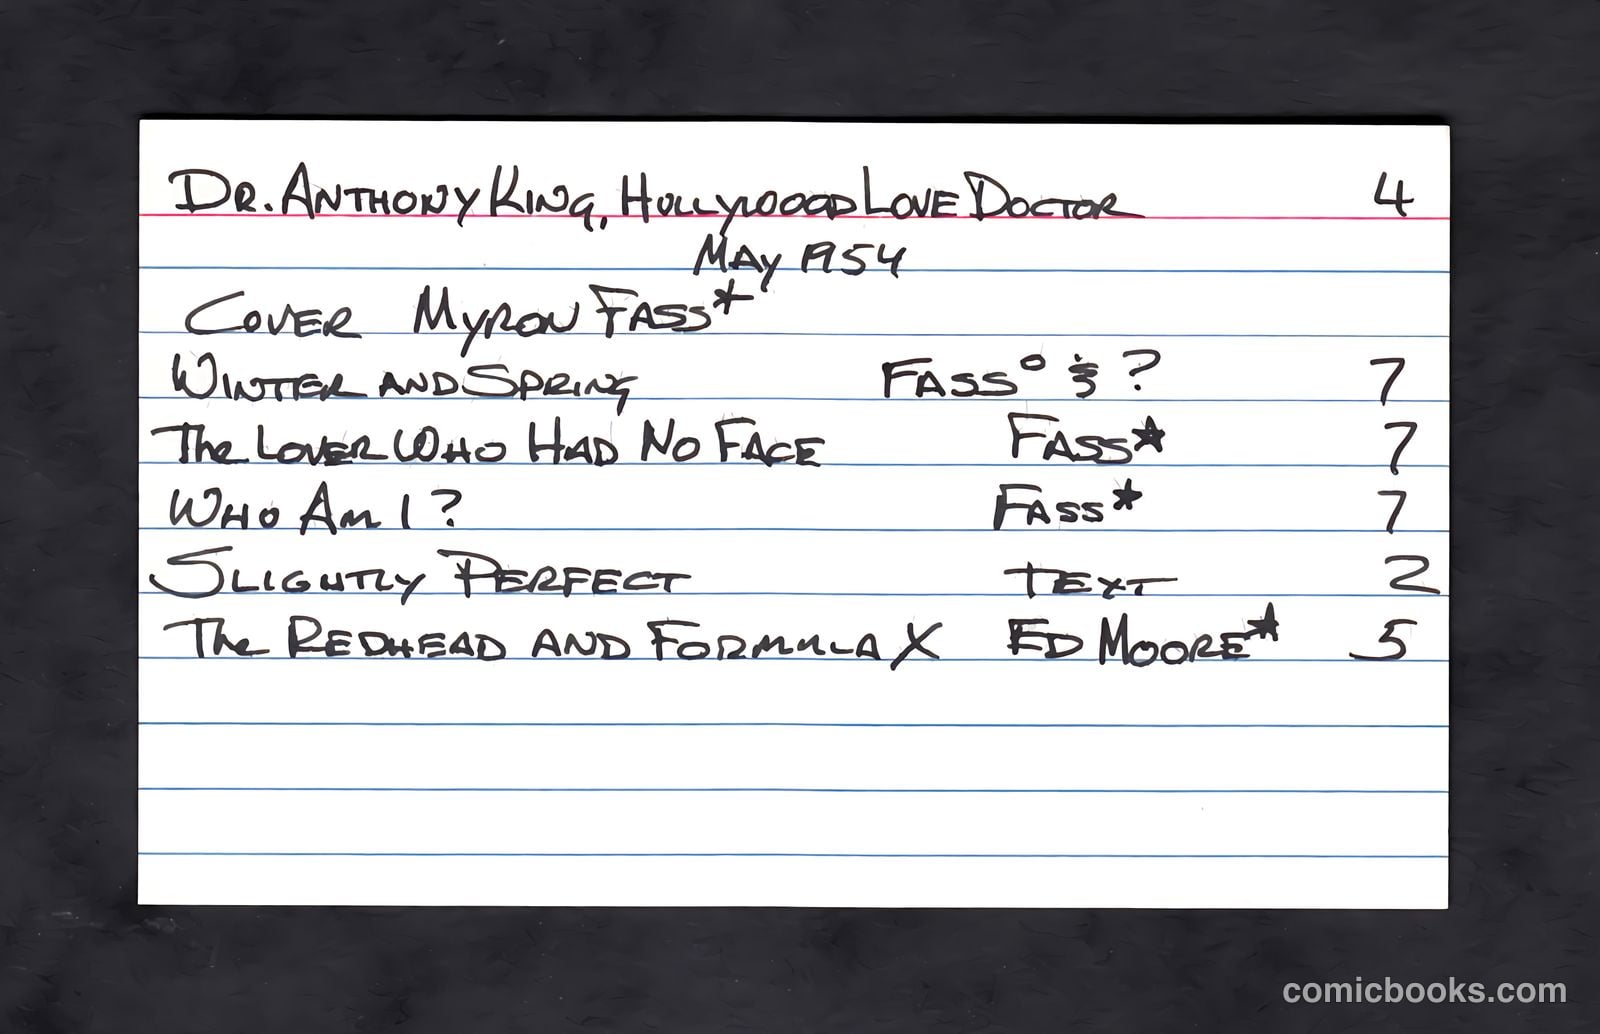 Dr. Anthony King, Hollywood Love Doctor 4
May 1954
Cover Myron Fass*
Winter and Spring Fass° & ? 7
The Lover Who Had No Face Fass★ 7
Who Am I? Fass★ 7
Slightly Perfect Text 2
The Redhead and Formula X Ed Moore★ 5
comicbooks.com